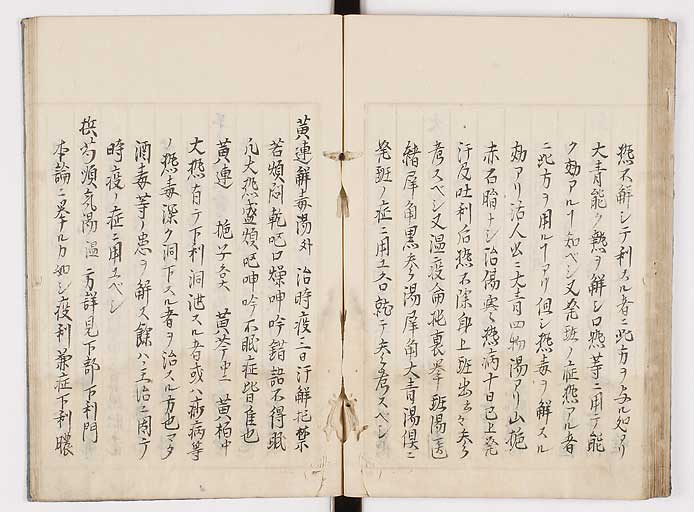 熱不解シテ利スル者ニ此方ヲ与ル処アリ
大青能ク熱ヲ解シ口熱等ニ用テ能
ク効アルヿ知ベシ又発斑ノ症熱アル者
ニ此方ヲ用ルヿアリ但シ熱毒ヲ解スル
効アリ活人出ニ大青四物湯アリ山梔
赤石脂ナシ治傷寒熱病十日已上発
汗及吐利后熱不除身上斑出云々参
考スベシ又温疫論托裏挙斑湯
犀角黒参湯犀角大青湯倶ニ
発斑ノ症ニ用ユ各就テ参考スベシ
黄連解毒湯外 治時疫三日汗解
苦煩悶乾呕口燥呻吟錯語不得眠
凡大熱盛煩呕呻吟不眠症皆佳也
黄連 梔子各大 黄芩中 黄栢中
大熱有テ下利洞泄スル者或ハ痧病等
ノ熱毒深ク洞下スル者ヲ治スル方也マタ
酒毒等ノ患ヲ解ス餘ハ主治ニ因テ
時疫ノ症ニ用ユベシ
芍順気湯温 方詳見下部下利門
本論ニ挙ルカ如シ疫利兼症下利